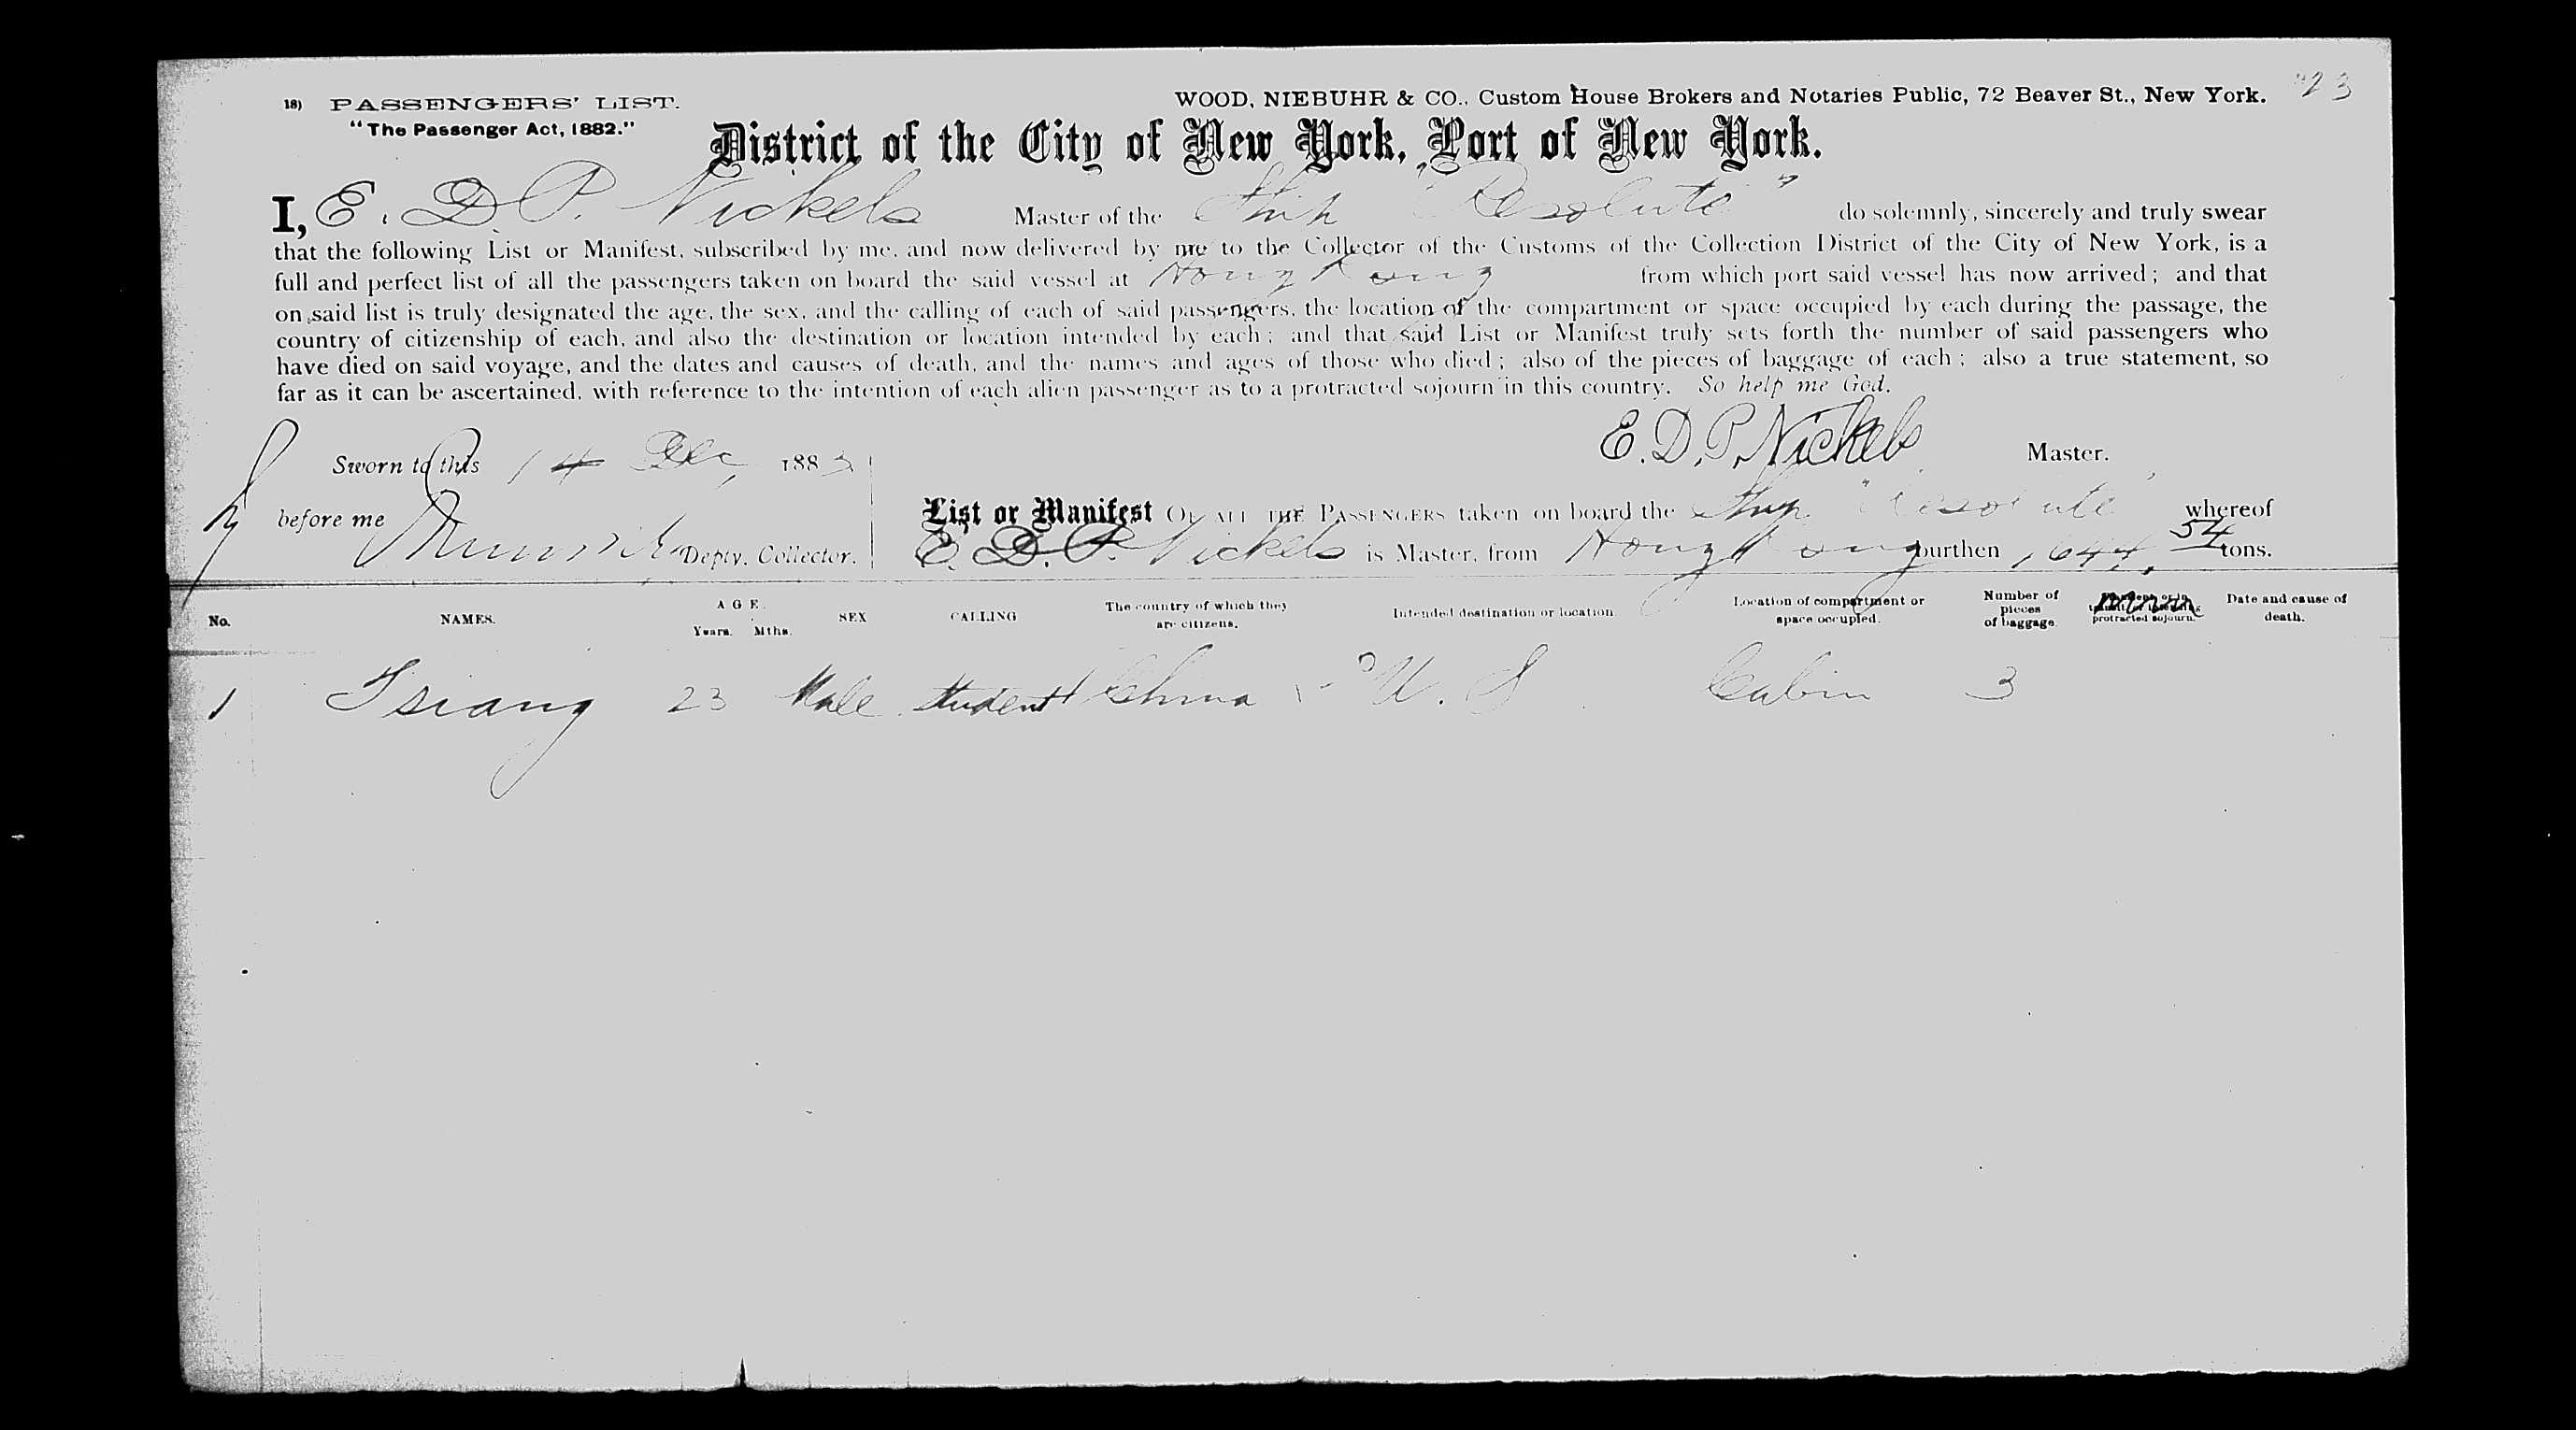 18) PASSENGERS' LIST. WOOD, NIEBUHR & CO., Custom House Brokers and Notaries Public, 72 Beaver St., New York. 23
"The Passenger Act, 1882."
District of the City of New York, Port of New York.
I, E. D. P. Nickels Master of the Ship "Resolute" do solemnly, sincerely and truly swear
that the following List or Manifest, subscribed by me, and now delivered by me to the Collector of the Customs of the Collection District of the City of New York, is a
full and perfect list of all the passengers taken on board the said vessel at Hong Kong from which port said vessel has now arrived; and that
on said list is truly designated the age, the sex, and the calling of each of said passengers, the location of the compartment or space occupied by each during the passage, the
country of citizenship of each, and also the destination or location intended by each; and that said List or Manifest truly sets forth the number of said passengers who
have died on said voyage, and the dates and causes of death, and the names and ages of those who died; also of the pieces of baggage of each; also a true statement, so
far as it can be ascertained, with reference to the intention of each alien passenger as to a protracted sojourn in this country. So help me God.
E. D. P. Nickels Master.
Sworn to this 14 Dec, 1883
before me Depty. Collector.
List or Manifest OF ALL THE PASSENGERS taken on board the Ship "Resolute" whereof
E. D. P. Nickels is Master, from Hong Kong burthen 1644. 54 tons.
No. NAMES. AGE. Years. Mths. SEX CALLING The country of which they are citizens. Intended destination or location. Location of compartment or space occupied. Number of pieces of baggage. protracted sojourn. Date and cause of death.
1 Tsiang 23 Male Student China U. S Cabin 3